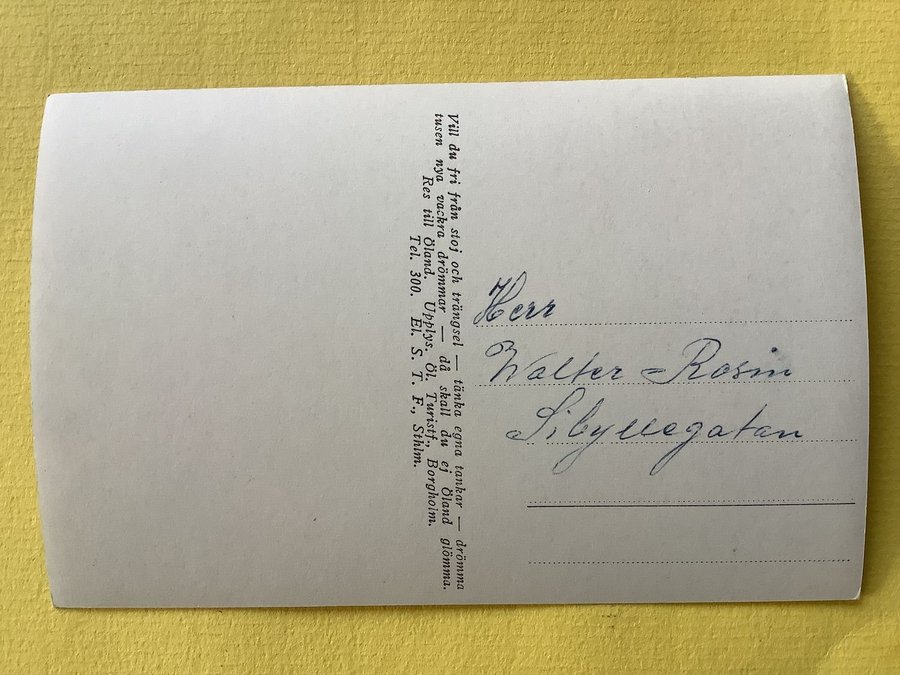 Vill du fri från stoj och trängsel — tänka egna tankar — drömma
tusen nya vackra drömmar — då skall du ej Öland glömma.
Res till Öland. Upplys. Öl. Turistf., Borgholm.
Tel. 300. El. S. T. F., Sthlm.
Herr
Walter Rosin
Sibyllegatan